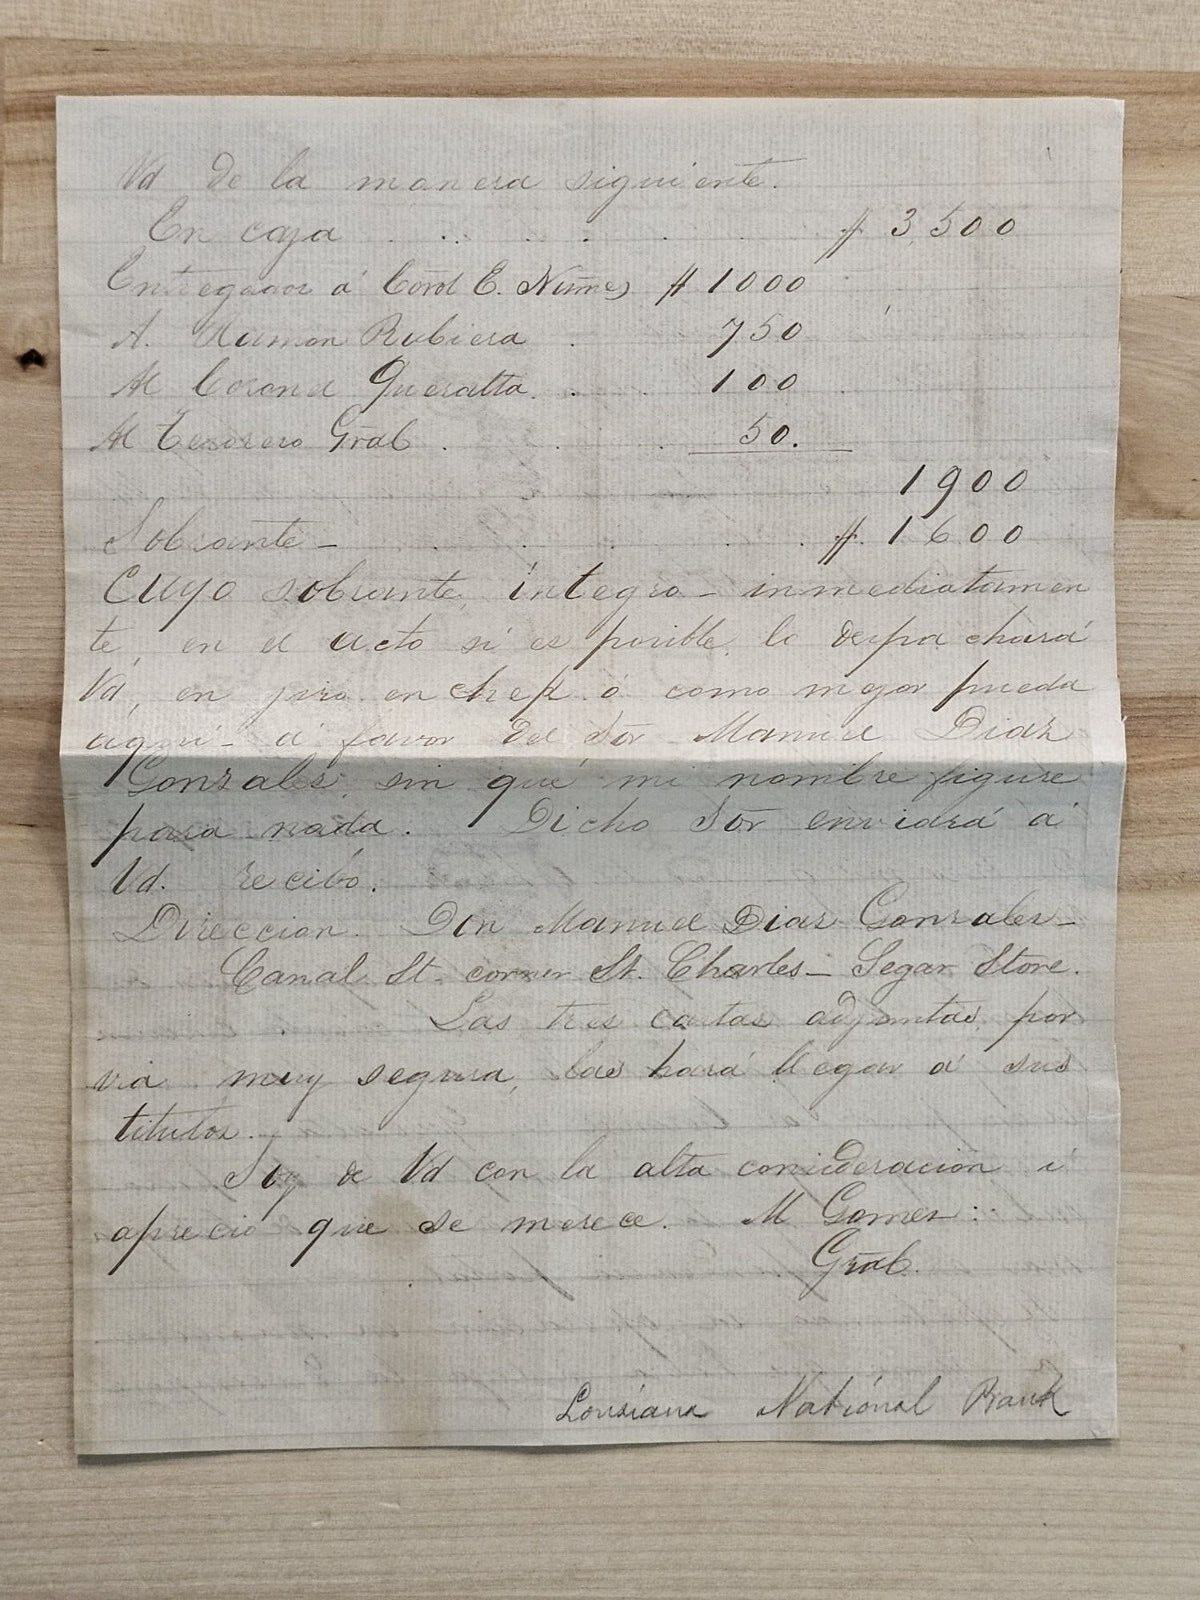 Vd de la manera siguiente.
En caja . . . . . . $ 3,500
Entregados á Corol E. Nuñes $ 1000
A. Ramon Rubiera . 750
Al Coronel Queralta . . . 100 .
Al Tesorero Gral . . . 50.
1900
Sobrante – . . . . . $. 1600
Cuyo sobrante, íntegro – inmediatamen
te, en el acto si es posible, lo despachará
Vd, en giro en chek ó como mejor pueda
aquí – á favor del Sor Manuel Diaz
Gonzales, sin que mi nombre figure
para nada. Dicho Sor enviará á
Vd. recibo.
Direccion. Don Manuel Diaz Gonzales –
Canal St. corner St. Charles – Segar Store.
Las tres cartas adjuntas, por
via muy segura, las hará llegar á sus
titulos.
Soy de Vd con la alta consideracion i
aprecio que se merece. M Gomez :
Gral.
Louisiana National Bank